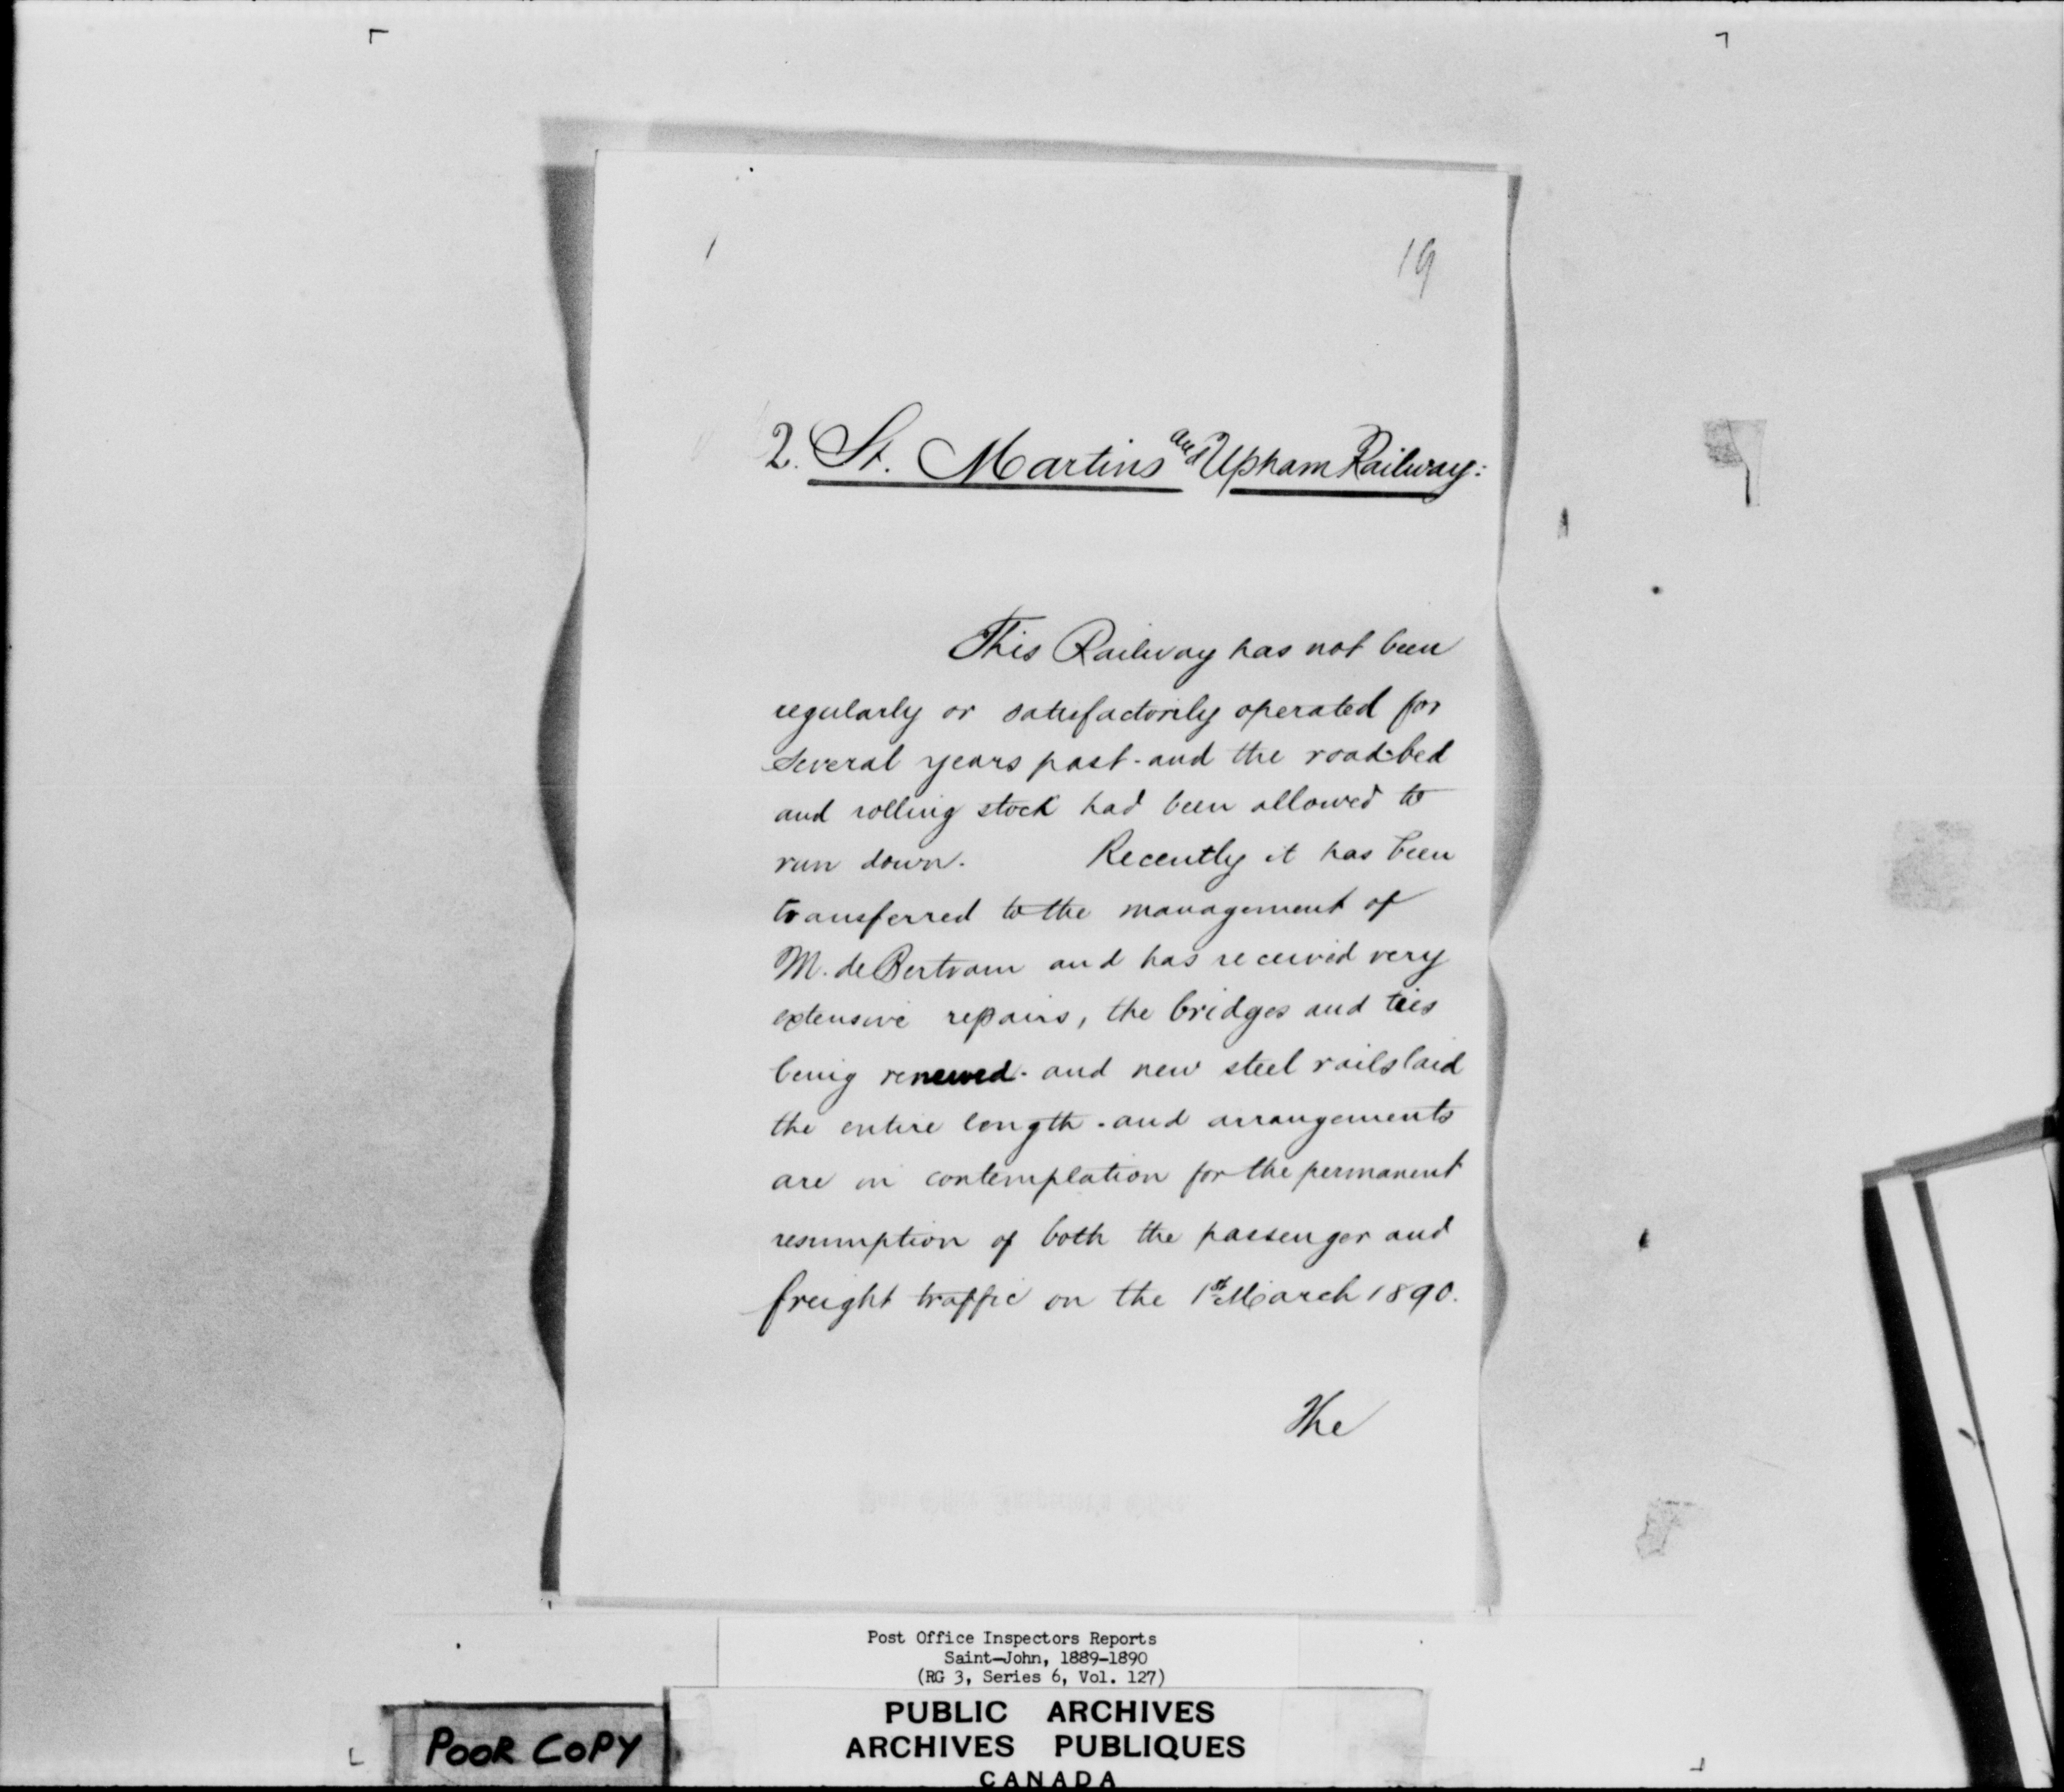 19
2. St. Martins and Upham Railway:
This Railway has not been
regularly or satisfactorily operated for
several years past - and the road-bed
and rolling stock had been allowed to
run down. Recently it has been
transferred to the management of
M. de Bertram and has received very
extensive repairs, the bridges and ties
being renewed - and new steel rails laid
the entire length - and arrangements
are in contemplation for the permanent
resumption of both the passenger and
freight traffic on the 1st March 1890.
The
Post Office Inspectors Reports
Saint-John, 1889-1890
(RG 3, Series 6, Vol. 127)
PUBLIC ARCHIVES
ARCHIVES PUBLIQUES
CANADA
POOR COPY